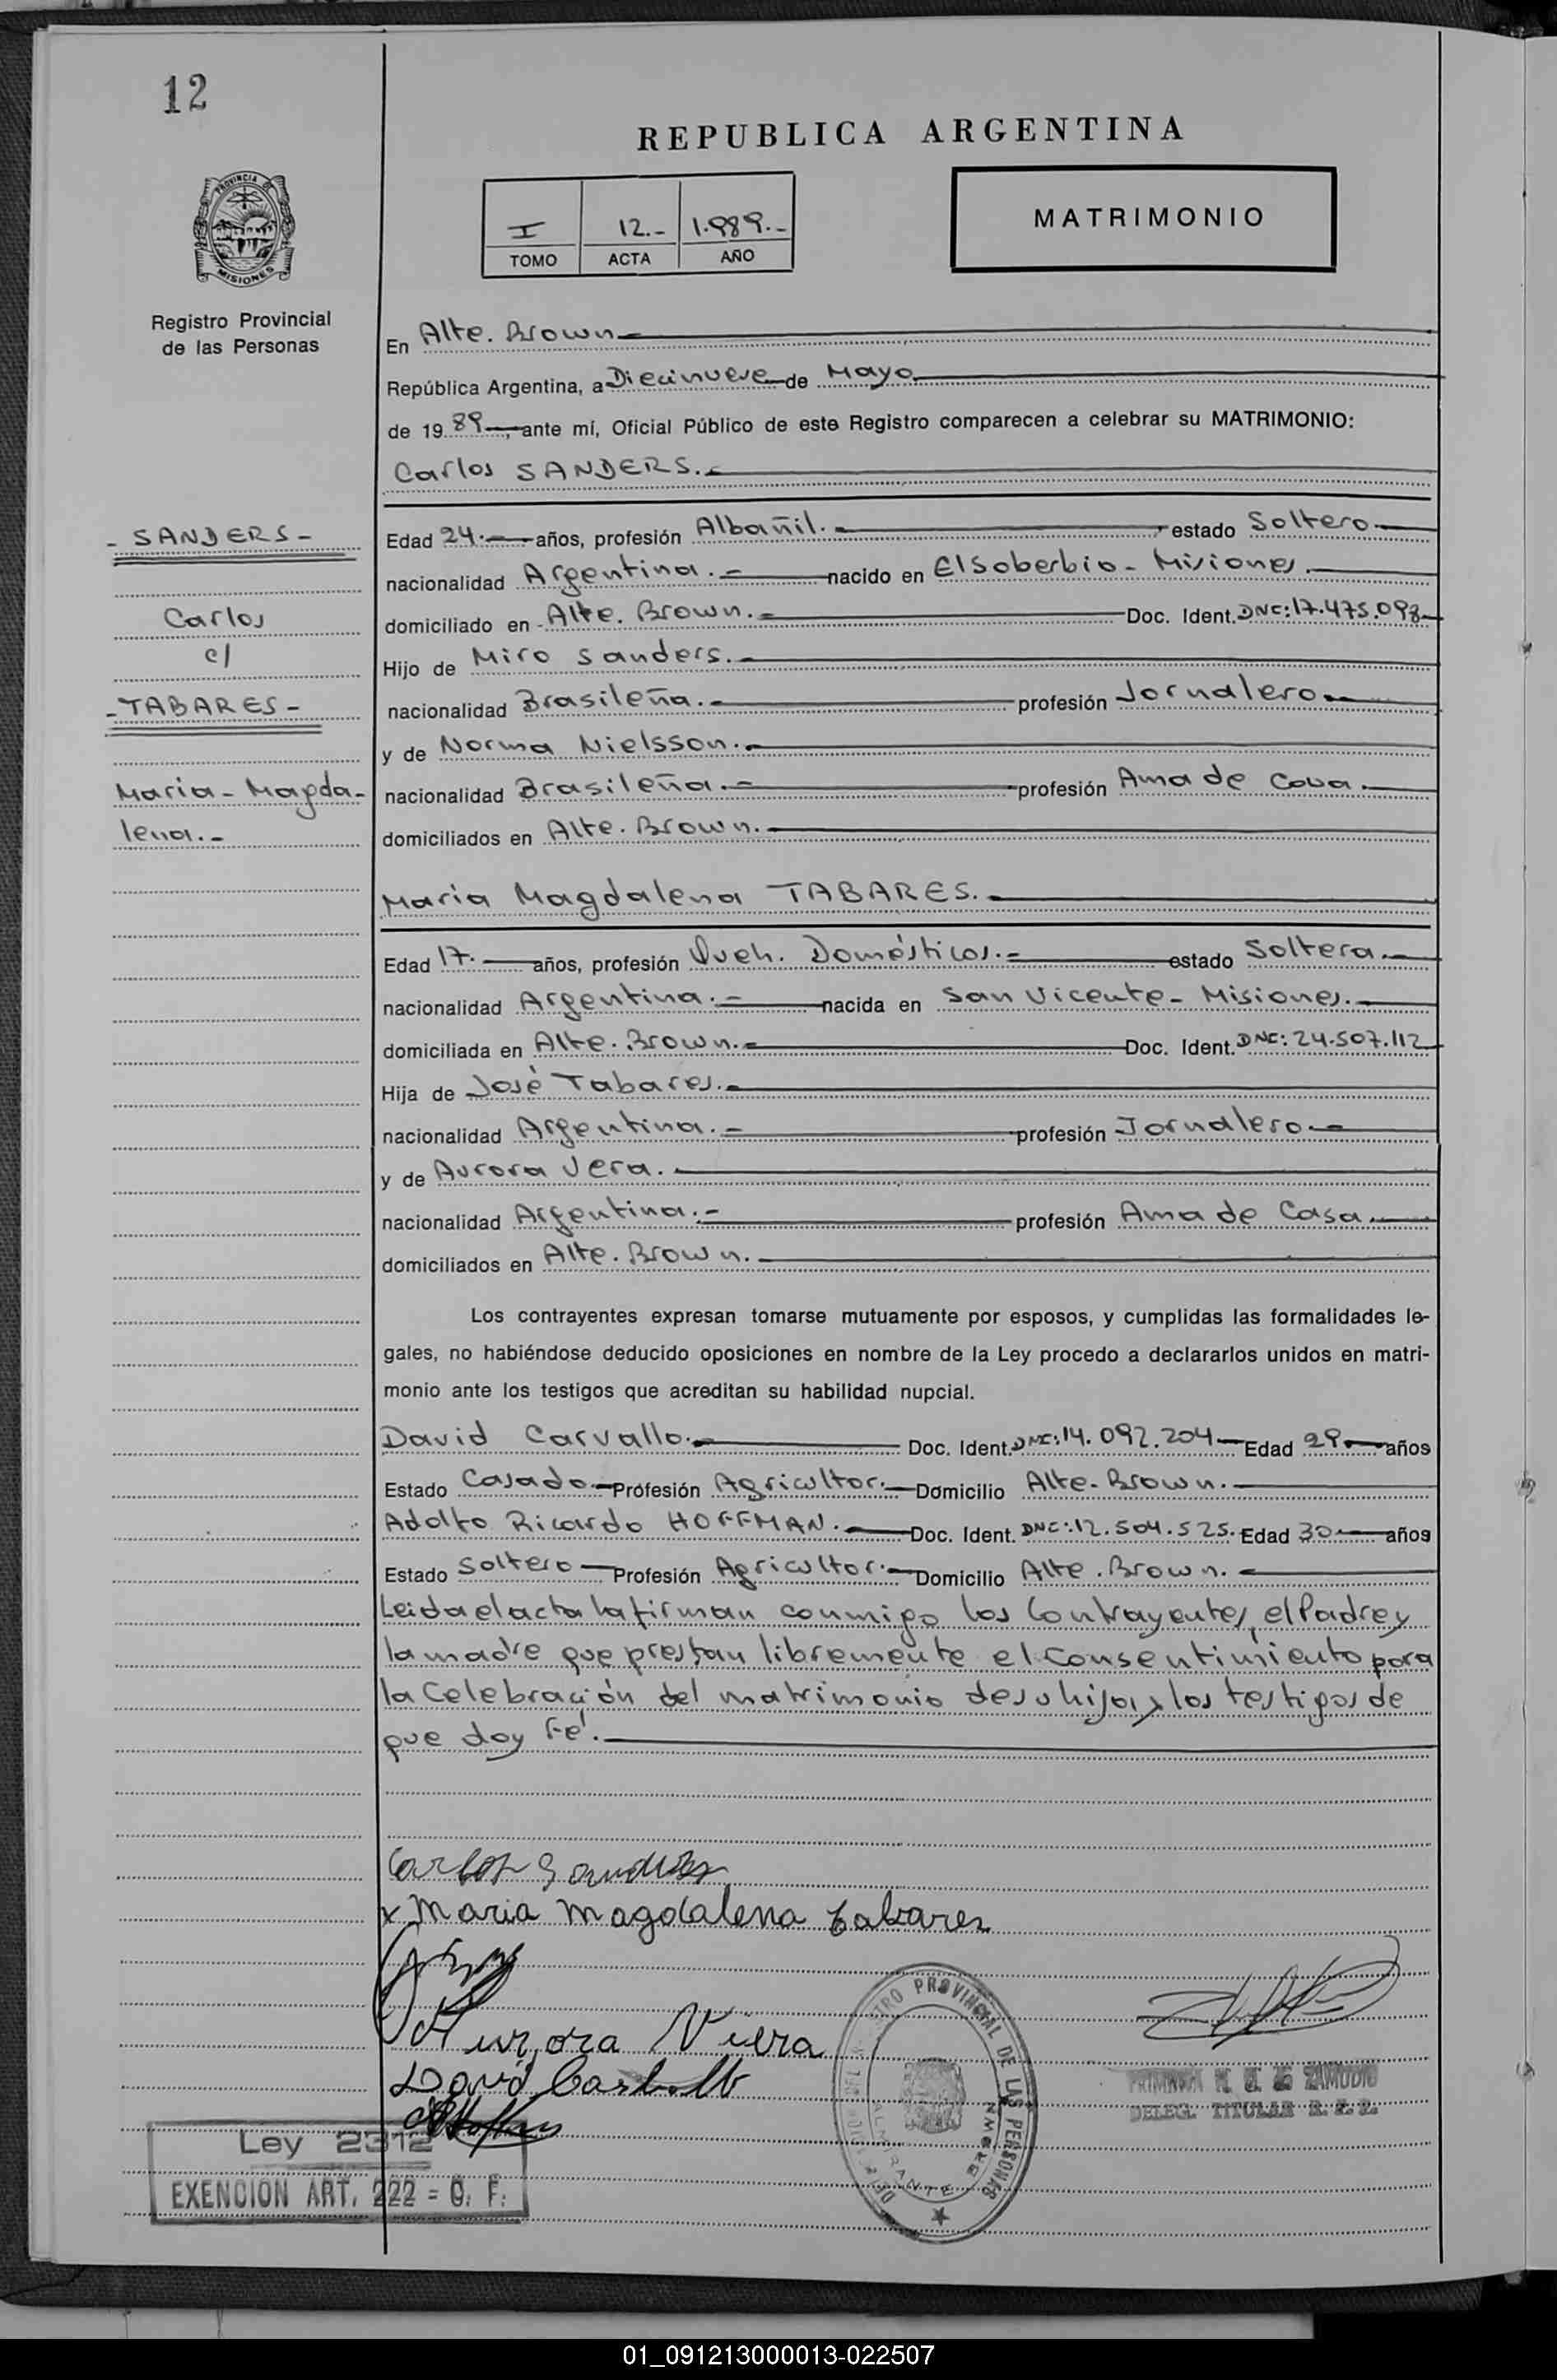 12
REPUBLICA ARGENTINA
PROVINCIA DE
MISIONES
I 12.- 1.989.-
TOMO ACTA AÑO
MATRIMONIO
Registro Provincial
de las Personas
En Alte. Brown
República Argentina, a Diecinueve de Mayo
de 19 89, ante mí, Oficial Público de este Registro comparecen a celebrar su MATRIMONIO:
Carlos SANDERS.
- SANDERS -
Carlos
c/
- TABARES -
Maria - Magda-
lena.-
Edad 24.- años, profesión Albañil.- estado Soltero.-
nacionalidad Argentina.- nacido en El Soberbio - Misiones.
domiciliado en - Alte. Brown.- Doc. Ident. DNI:17.475.093
Hijo de Miro Sanders.-
nacionalidad Brasileña.- profesión Jornalero.-
y de Norma Nielsson.-
nacionalidad Brasileña.- profesión Ama de Casa.
domiciliados en Alte. Brown.-
Maria Magdalena TABARES.-
Edad 17.- años, profesión Queh. Domésticos.- estado Soltera.-
nacionalidad Argentina.- nacida en San Vicente - Misiones.-
domiciliada en Alte. Brown.- Doc. Ident. DNI: 24.507.112
Hija de José Tabares.-
nacionalidad Argentina.- profesión Jornalero.-
y de Aurora Vera.
nacionalidad Argentina.- profesión Ama de Casa.
domiciliados en Alte. Brown.
Los contrayentes expresan tomarse mutuamente por esposos, y cumplidas las formalidades le-
gales, no habiéndose deducido oposiciones en nombre de la Ley procedo a declararlos unidos en matri-
monio ante los testigos que acreditan su habilidad nupcial.
David Carvallo.- Doc. Ident. DNI:14.092.204 Edad 29 años
Estado Casado.- Profesión Agricultor.- Domicilio Alte. Brown.
Adolfo Ricardo HOFFMAN.- Doc. Ident. DNI:12.504.525. Edad 30 años
Estado Soltero Profesión Agricultor.- Domicilio Alte. Brown.
Leida el acta la firman conmigo los Contrayentes, el Padre y
la madre que prestan libremente el consentimiento para
la Celebración del matrimonio de su hija, y los testigos de
que doy Fé.
Carlos Sanders
x Maria Magdalena Tabares
Aurora Viera
David Carballo
REGISTRO PROVINCIAL DE LAS PERSONAS
ALMIRANTE BROWN
ZAMUDIO
DELEG. TITULAR R. P. P.
Ley 2312
EXENCION ART. 222 = C. F.
01_091213000013-022507